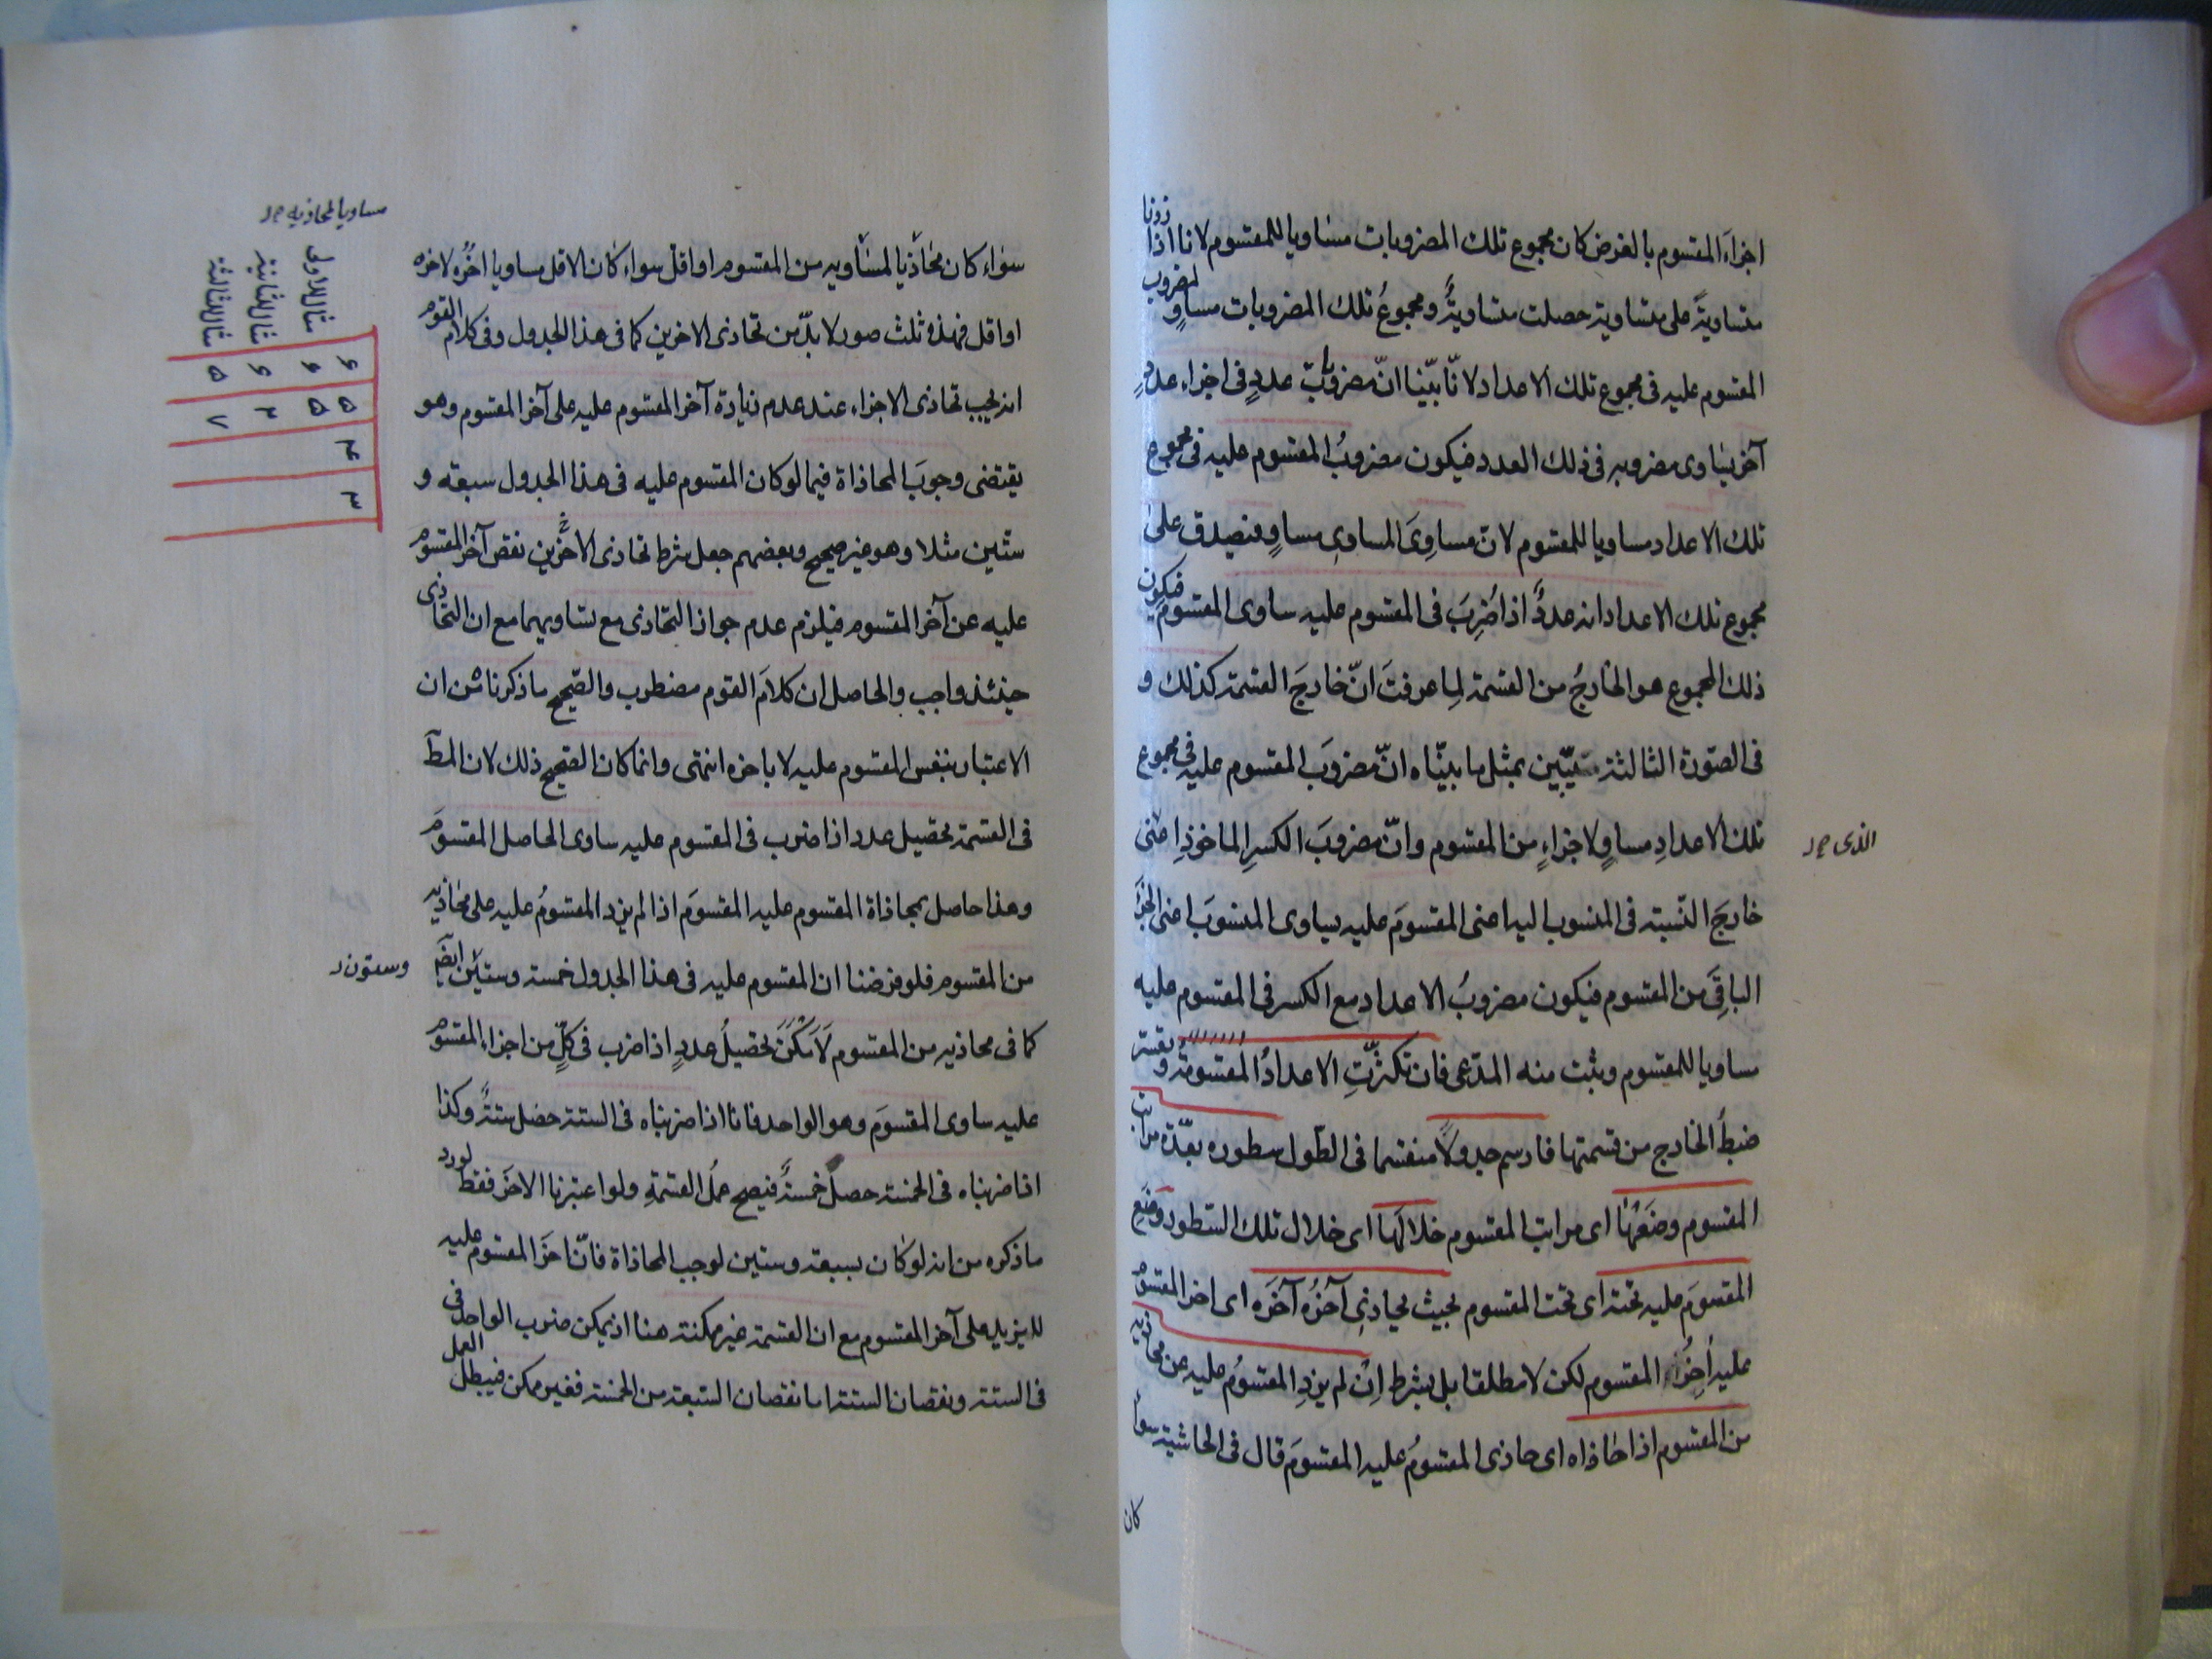 اجزاءَ المقسوم بالفرض كان مجموع تلك المضروبات مساويا للمقسوم لانا اذا زدنا
متساويةً على متساوية حصلت متساويةٌ ومجموعُ تلك المضروبات مساوٍ لمضروب
المقسوم عليه فى مجموع تلك الاعداد لانّا بيّنا انّ مضروبات عددٍ فى اجزاء عددٍ
آخر يساوى مضروبه فى ذلك العدد فيكون مضروبُ المقسوم عليه فى مجموع
تلك الاعداد مساويا للمقسوم لانّ مساوِىَ المساوِى مساوٍ فيصدق على
مجموع تلك الاعداد انه عددٌ اذا ضُرِبَ فى المقسوم عليه ساوى المقسومَ فيكون
ذلك المجموع هو الخارجُ من القسمة لِما عرفتَ انّ خارجَ القسمة كذلك و
فى الصّورة الثالثة يتبيّن بمثل ما بيّناه انّ مضروبَ المقسوم عليه فى مجموع
تلك الاعدادِ مساوٍ لاجزاءٍ من المقسوم وانّ مضروبَ الكسرِ الماخوذِ اعنى
الذى صح
خارجَ النّسبة فى المنسوب اليه اعنى المقسومَ عليه يساوى المنسوبَ اعنى الجزءَ
الباقِىَ من المقسوم فيكون مضروبُ الاعداد مع الكسر فى المقسوم عليه
مساويا للمقسوم ويثبت منه المدّعى فان تكثّرتِ الاعدادُ المقسومةُ وتعسّر
ضبطُ الخارج من قسمتها فارسم جدولًا منقسما فى الطّول سطوره بعدّة مراتب
المقسوم وضَعْهَا اى مراتب المقسوم خلالَها اى خلال تلك السّطور وضَعِ
المقسومَ عليه تحته اى تحت المقسوم بحيث يحاذِى آخرُه آخرَه اى اخر المقسوم
عليه اٰخِرُ المقسوم لكن لا مطلقا بل بشرط اِن لم يزدِ المقسومُ عليه عن محاذيه
من المقسوم اذا حاذاه اى حاذى المقسومُ عليه المقسومَ قال فى الحاشية سواءٌ
كان
سواء كان محاذيا لمساويه من المقسوم او اقلّ سواء كان الاقل مساويا اخرُه لاخره
مساويا لمحاذيه صح
او اقل فهذه ثلث صور لا بدّ من تحاذى الاخرين كما فى هذا الجدول وفى كلام القوم
انه يجب تحاذى الاجزاء عند عدم زيادة آخر المقسوم عليه على آخر المقسوم وهو
يقتضى وجوبَ المحاذاة فيما لو كان المقسوم عليه فى هذا الجدول سبعة و
ستّين مثلا وهو غير صحيح وبعضهم جعل شرط تحاذى الاخرين نقص آخر المقسوم
عليه عن آخر المقسوم فيلزم عدم جواز التحاذى مع تساويهما مع ان التحاذى
حينئذ واجب والحاصل ان كلامَ القوم مضطرب والصّحيح ما ذكرناه من ان
الاعتبار بنفس المقسوم عليه لا باخره انتهى وانما كان الصّحيح ذلك لان المط
فى القسمة تحصيل عدد اذا ضرب فى المقسوم عليه ساوى الحاصل المقسومَ
وهذا حاصل بمحاذاة المقسوم عليه المقسومَ اذا لم يزد المقسومُ عليه على محاذيه
من المقسوم فلو فرضنا ان المقسوم عليه فى هذا الجدول خمسة وستين ايضًا
وستون
كما فى محاذيه من المقسوم لَاَمْكَنَ تحصيلُ عددٍ اذا ضرب فى كلٍّ من اجزاء المقسوم
عليه ساوى المقسومَ وهو الواحد فانا اذا ضربناه فى الستة حصل ستةٌ وكذا
اذا ضربناه فى الخمسة حصل خمسةٌ فيصح عملُ القسمةِ ولو اعتبرنا الاخرَ فقط لورد
ما ذكره من انه لو كان سبعة وستين لوجب المحاذاة فانّ اخرَ المقسوم عليه
لا يزيد على آخر المقسوم مع ان القسمة غير ممكنة هنا اذ يمكن ضرب الواحد فى
فى الستة ونقصان الستة اما نقصان السّبعة من الخمسة فغير ممكن فيبطل العمل
مثال للاولى
مثال للثانية
مثال للثالثة
۶ ۵ ۴ ۳
۶ ۵
۶ ۳
۵ ۷